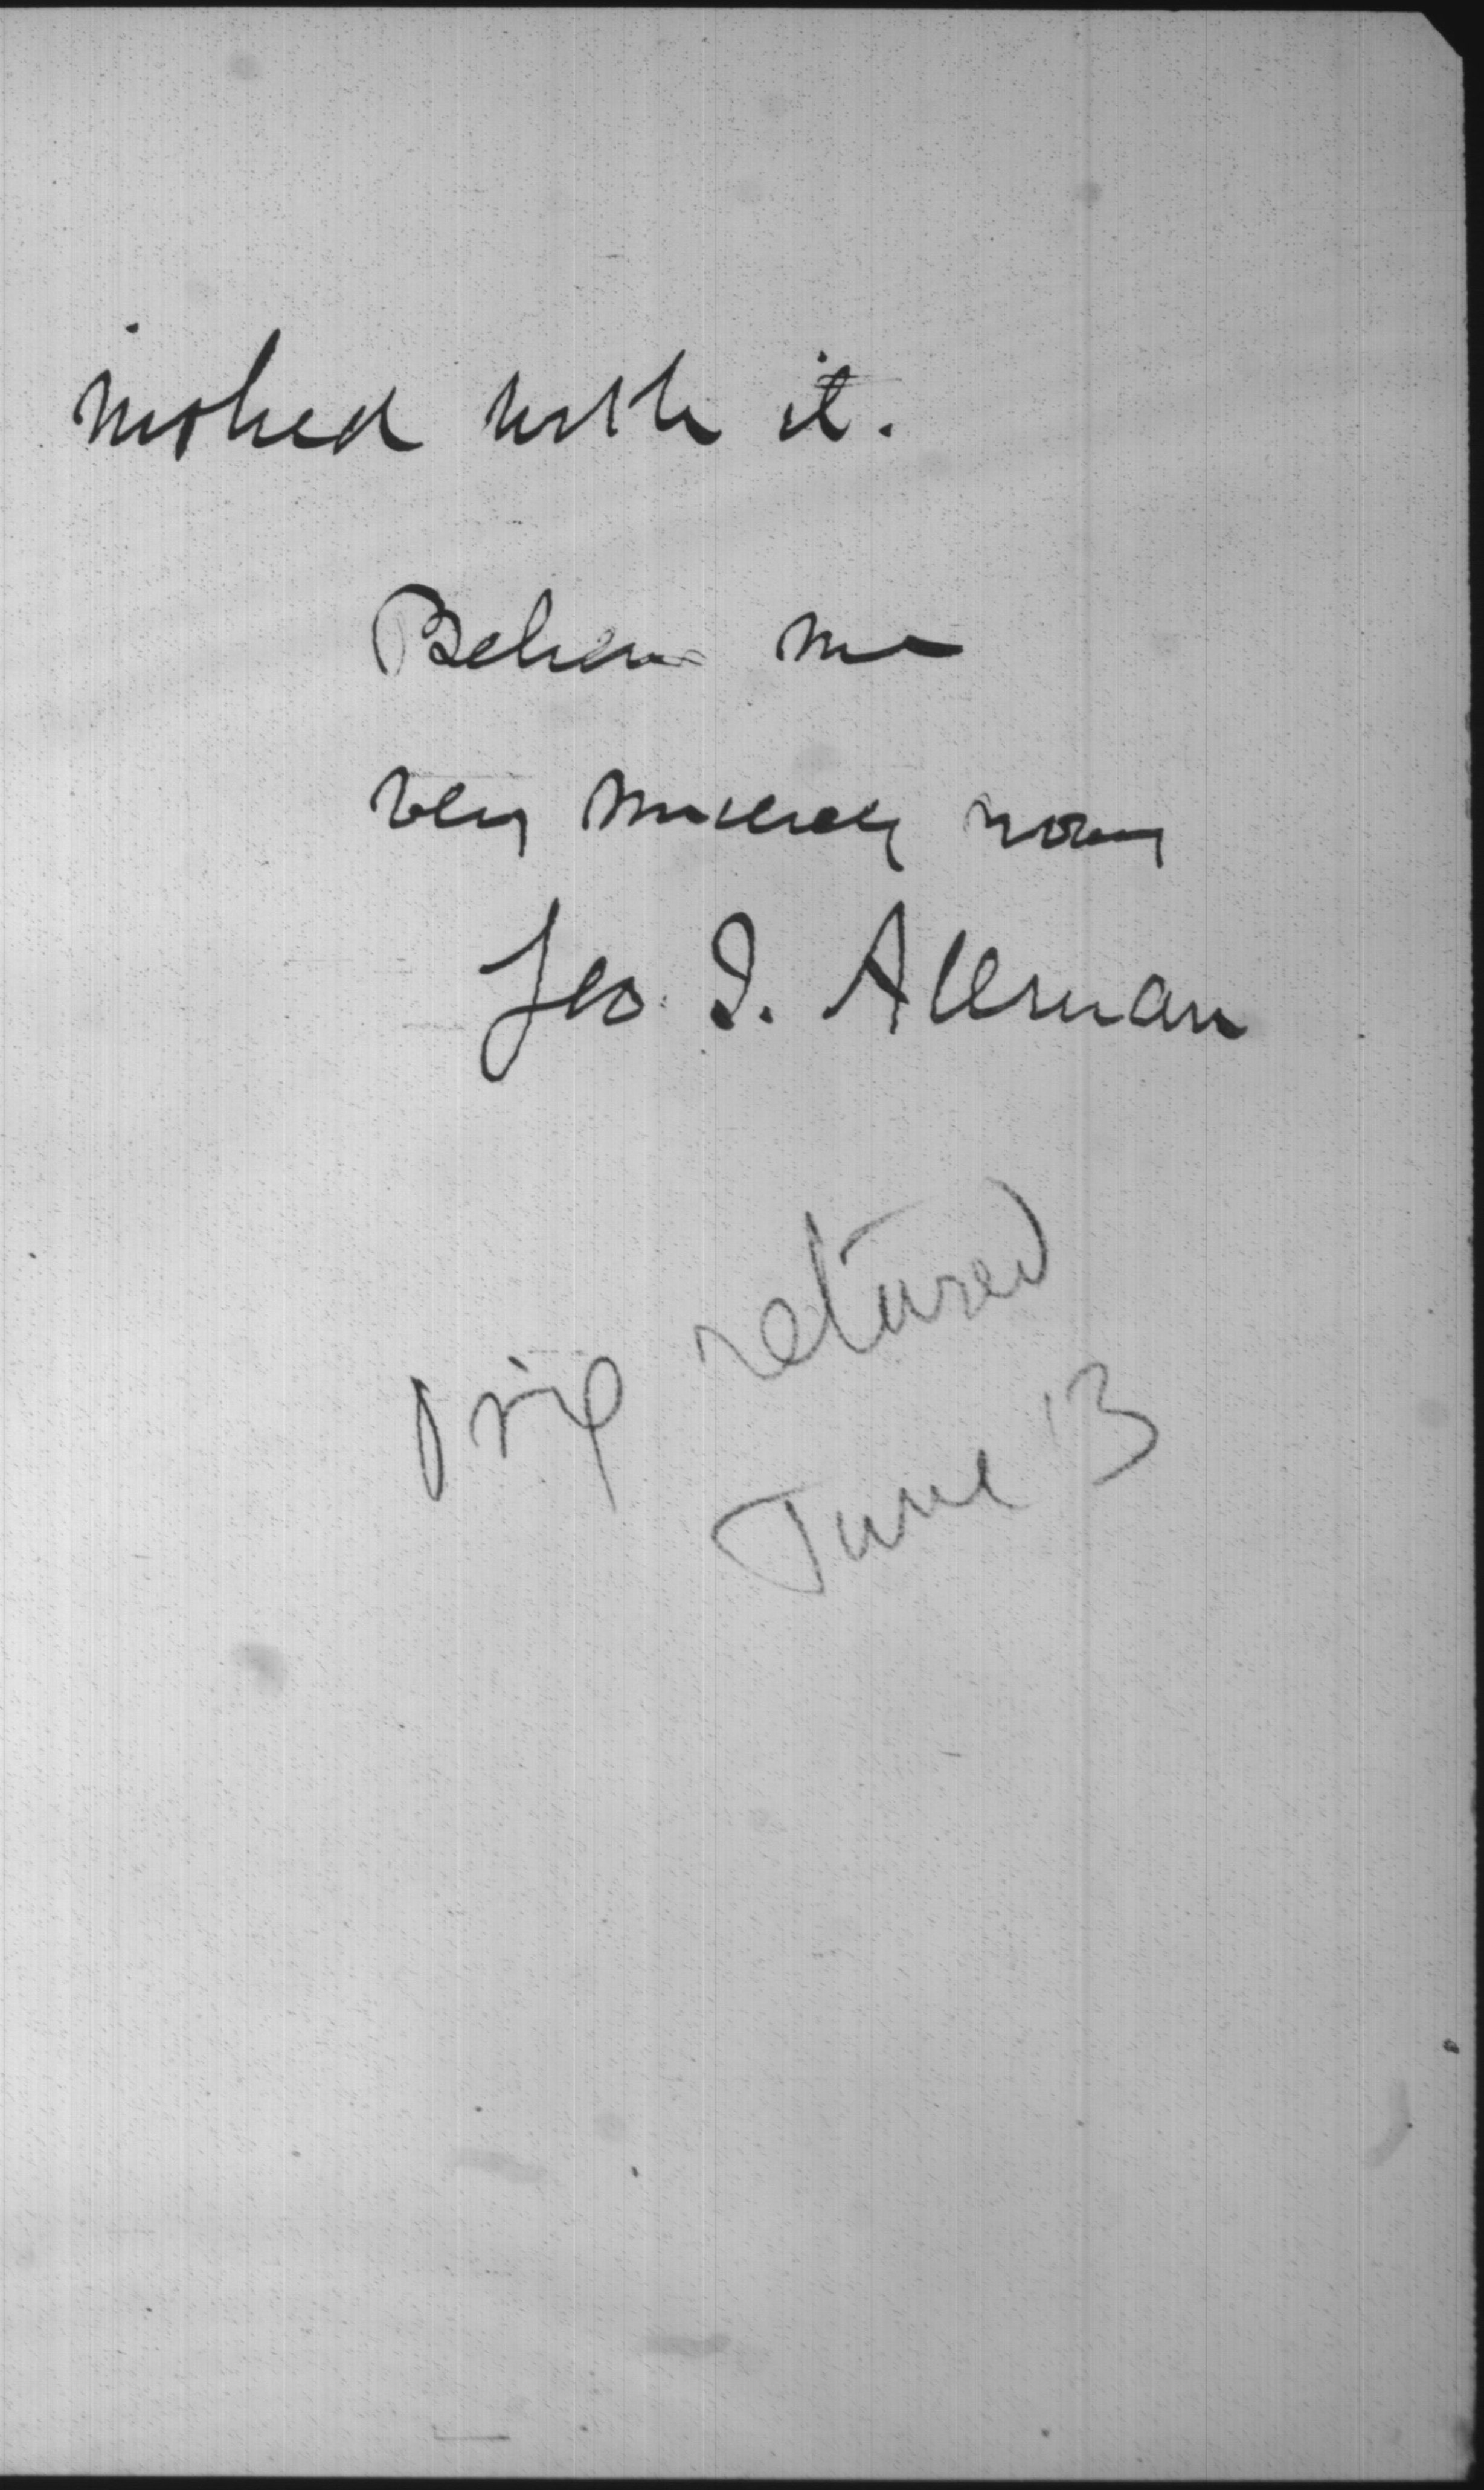 involved with it.
Believe me
very sincerely yours
Geo. J. Allman
orig returned
June 13